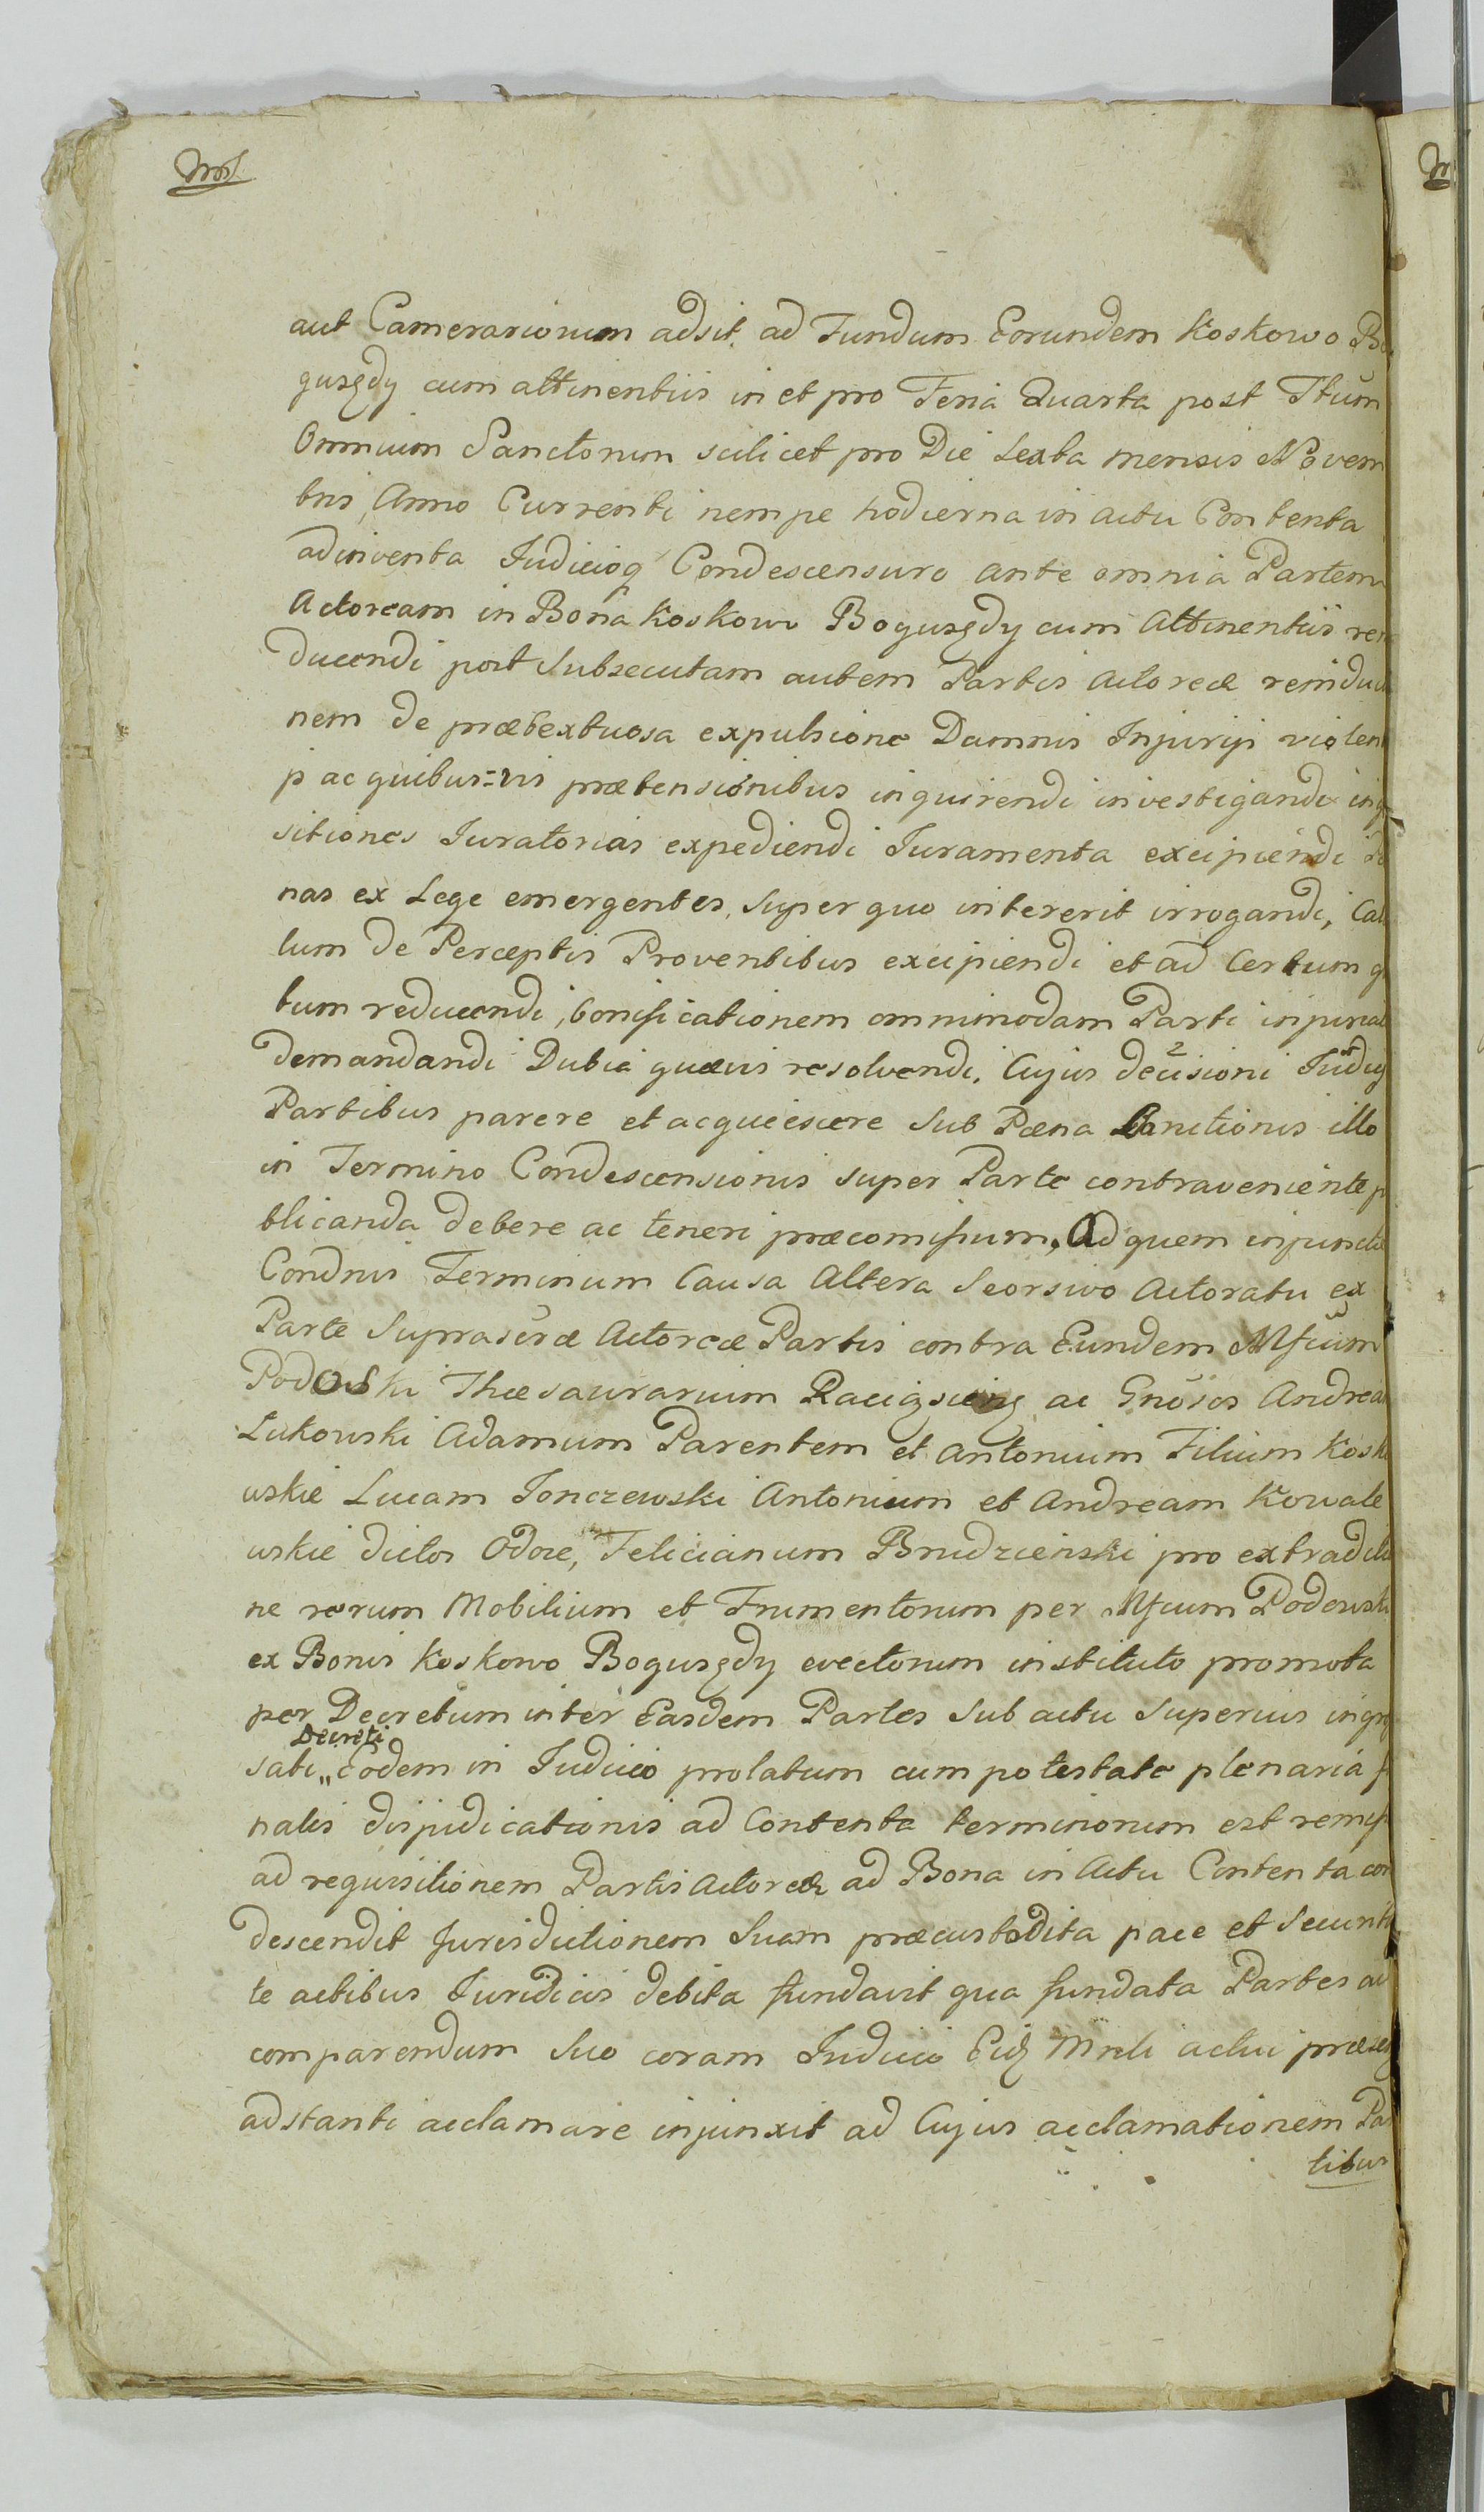 aut Camerariorum adsit, ad Fundum Eorundem Koskowo Bo
guszędy cum attinentiis in et pro Feria Quarta post Ftum
Omnium Sanctorum scilicet pro Die Sexta Mensis Novem
bris, Anno Currenti nempe hodierna in actu Contenta
adinventa Judicioq Condescensuro ante omnia Partem
Actoream in Bona Koskowo Boguszędy cum Attinentiis rein
ducendi post Subsecutam autem Partis Actoreæ reinduc
nem de prætextuosa expulsione Damnis Injurijs violen
js ac quibus=vis prætensionibus inquirendi investigandi inq
sitiones Juratorias expediendi Juramenta excipiendi
nas ex Lege emergentes, super quo intererit irrogandi, Cal
lum de Perceptis Proventibus excipiendi et ad Certum q
tum reducendi, bonificationem omnimodam Parti injuriat
demandandi Dubia quævis resolvendi. Cujus decisioni Judicij
Partibus parere et acquiescere Sub Pæna Banitionis illo
in Termino Condescensionis super Parte contraveniente p
blicanda debere ac teneri præcomissum, Ad quem injuncta
Condnis Terminum Causa Altera Seorsivo Actoratu ex
Parte Suprascræ Actoreæ Partis contra Eundem Mfcum
Podoski Thæsaurarium Raciąscieng ac Gnosos Andream
Łukowski Adamum Parentem et Antonium Filium Kosko
wskie Lucam Jonczewski Antonium et Andream Kowale
wskie dictos Odoie, Felicianum Brudzieński pro extraditio
ne rerum Mobilium et Frumentorum per Mfcum Podowski
ex Bonis Koskowo Boguszędy evectorum instituto promota
per Decretum inter Easdem Partes Sub actu Superius ingros
Decreti
sati „ Eodem in Judicio prolatum cum potestate plenaria f
nalis disjudicationis ad Contenta terminorum est remiss
ad requisitionem Partis Actoreæ ad Bona in Actu Contenta con
descendit Jurisdictionem Suam præcustodita pace et Securita
te actibus Juridicis debita fundavit qua fundata Partes ad
comparendum Suo coram Judicio Eidq Mnrli actui præsen
adstanti acclamare injunxit ad Cujus acclamationem Par
tibus